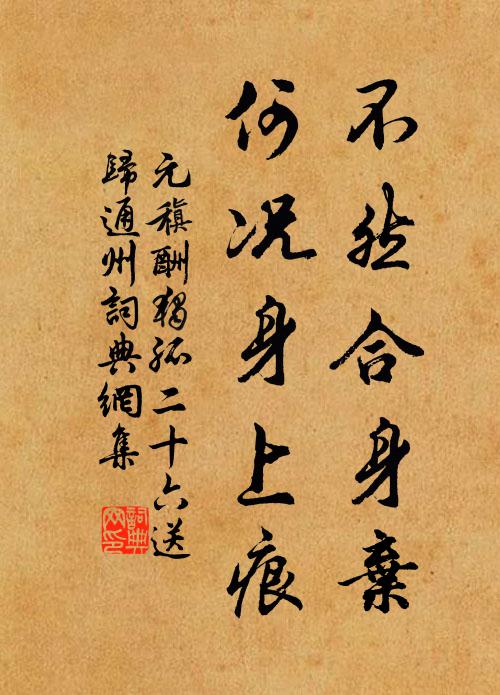 不然合身棄
何況身上痕
元稹酬獨孤二十六送
歸通州詞典網集